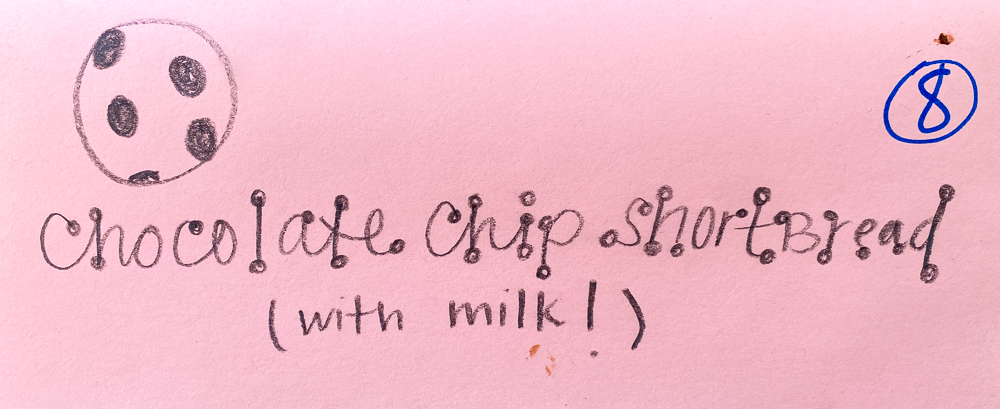 8
Chocolate Chip shortBread
(with milk!)